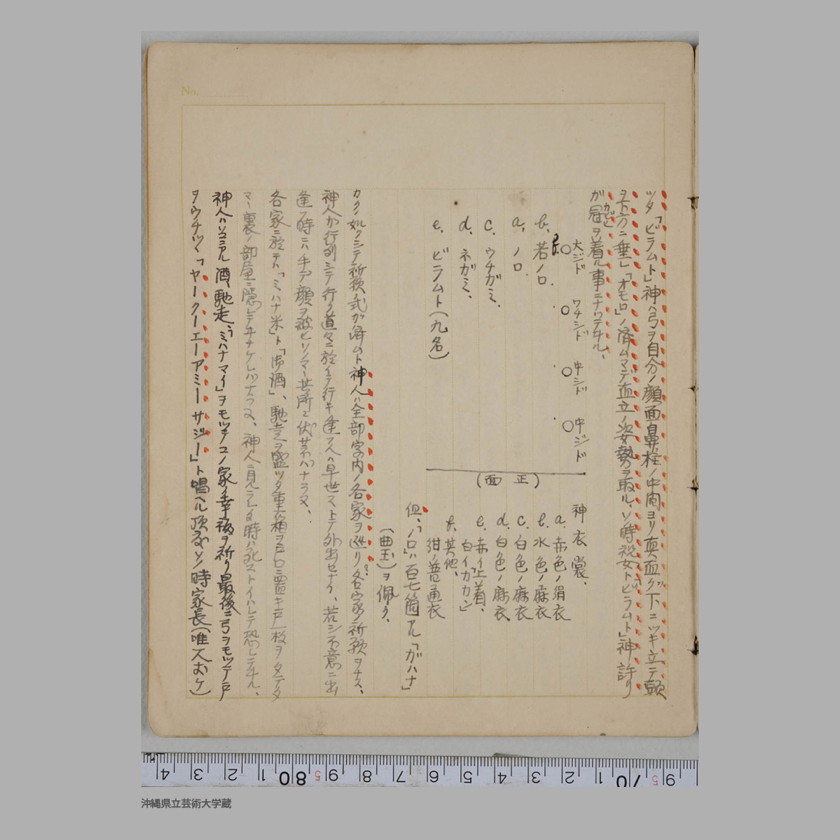 ツタ「ビラムト」神ハ弓ヲ自分ノ顔面鼻柱ノ中間ヨリ真直グ下ニツキ立テ頭
ヲ下方ニ垂レ「オモロ」ノ済ムマデ直立ノ姿勢ヲ取ル、ソノ時役女ト「ビラムト」神許リ
ガ冠ヲ着ル事ニナツテヰル、
大ジド
ワキシド
中シド
中ジド
b. 若ノロ
a. ノロ
c. ウチガミ
d. ネガミ
e. ビラムト(九名)
(正面)
神衣裳.
a. 赤色ノ絹衣
b. 水色ノ麻衣
c. 白色ノ麻衣
d. 白色ノ麻衣
e. 赤イ上着、
白イカカン
f. 其他、
紺ノ普通衣
但、ノロハ百七箇アル「ガハナ」
(曲玉)ヲ佩ク、
カクノ如クシテ祈願式ガ済ムト神人ハ全部字内ノ各家ヲ巡リ各家ノ祈願ヲナス、
神人ガ行列シテ行ク道々ニ於イテ行キ逢フ人ハ早世ストテ外出セナク、若シ不意ニ出
逢フ時ニハ手デ顔ヲ被ヒソノマヽ其所ニ伏サネバナラヌ、
各家ニ於テハ「ミハナ米」ト「御酒」、馳走ヲ盛ツタ重箱ヲ戸口ニ置キ戸一枚ヲタテタ
マヽ裏ノ部屋ニ隠レテヰナケレバナラヌ、神人ニ見ラレタ時ハ死ストイハレテ恐レテヰル、
神人ハソコニアル酒馳走、「ミハナマイ」ヲモツテコノ家ノ幸福ヲ祈リ最後ニ弓ヲモツテ戸
ヲウチツヽ「ヤークーエーアミーサジー」ト唱ヘル 其ノ時家長(唯一人ダケ)
No.
沖縄県立芸術大学蔵